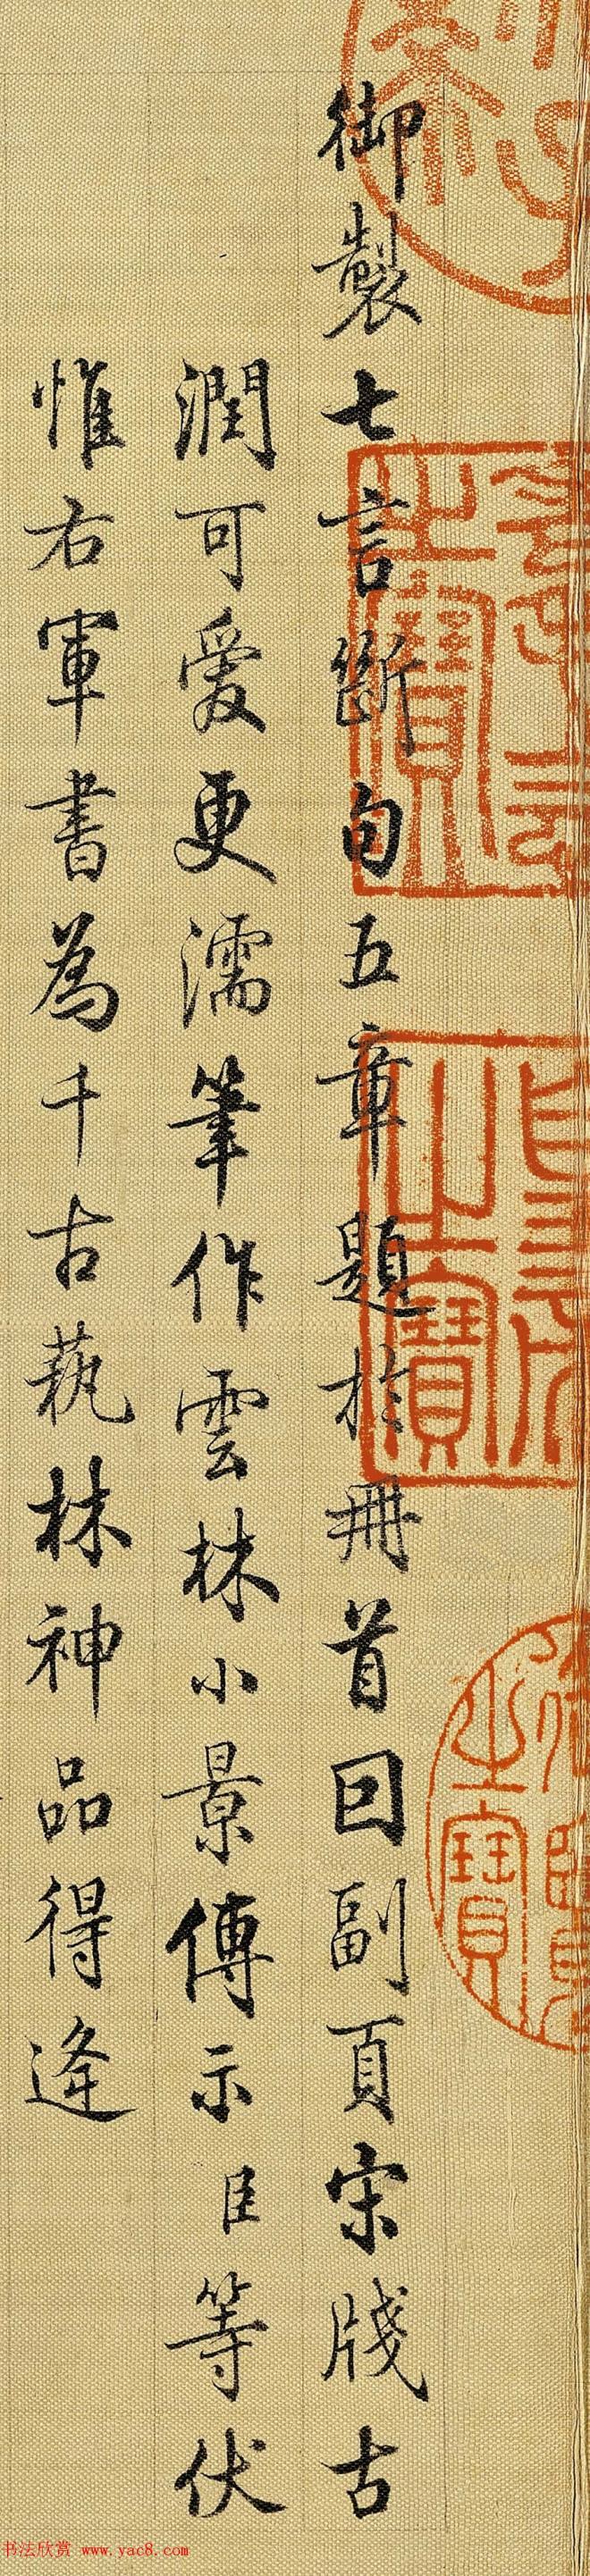 御製七言斷句五章題於冊首回副頁宋牋古
潤可愛更濡筆作雲林小景傳示臣等伏
惟右軍書為千古藝林神品得逢
之寶
之寶
之寶
书法欣赏 www.yac8.com